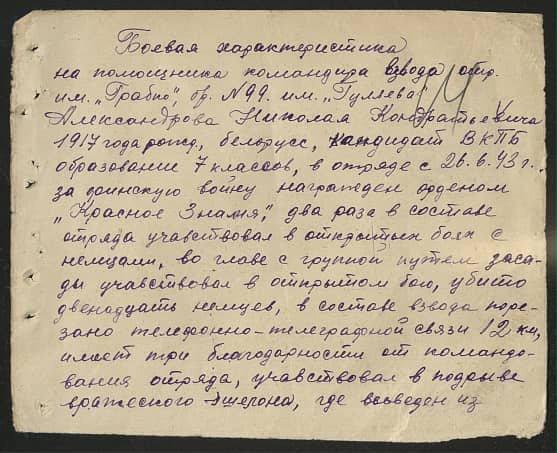 Боевая характеристика
на помощника командира взвода отр.
им. „Грабко", бр. N 99. им. „Гуляева"
Александрова Николая Кондратьевича
1917 года рожд, белорусс, кандидат ВКПБ
образование 7 классов, в отряде с 26.6.43 г.
за финскую войну награжден орденом
„Красное Знамя", два раза в составе
отряда учавствовал в открытых боях с
немцами, во главе с группой путем заса-
ды учавствовал в открытом бою, убито
двенадцать немцев, в составе взвода поре-
зано телефонно-телеграфной связи 12 км,
имеет три благодарности от командо-
вания отряда, учавствовал в подрыве
вражеского эшелона, где выведен из